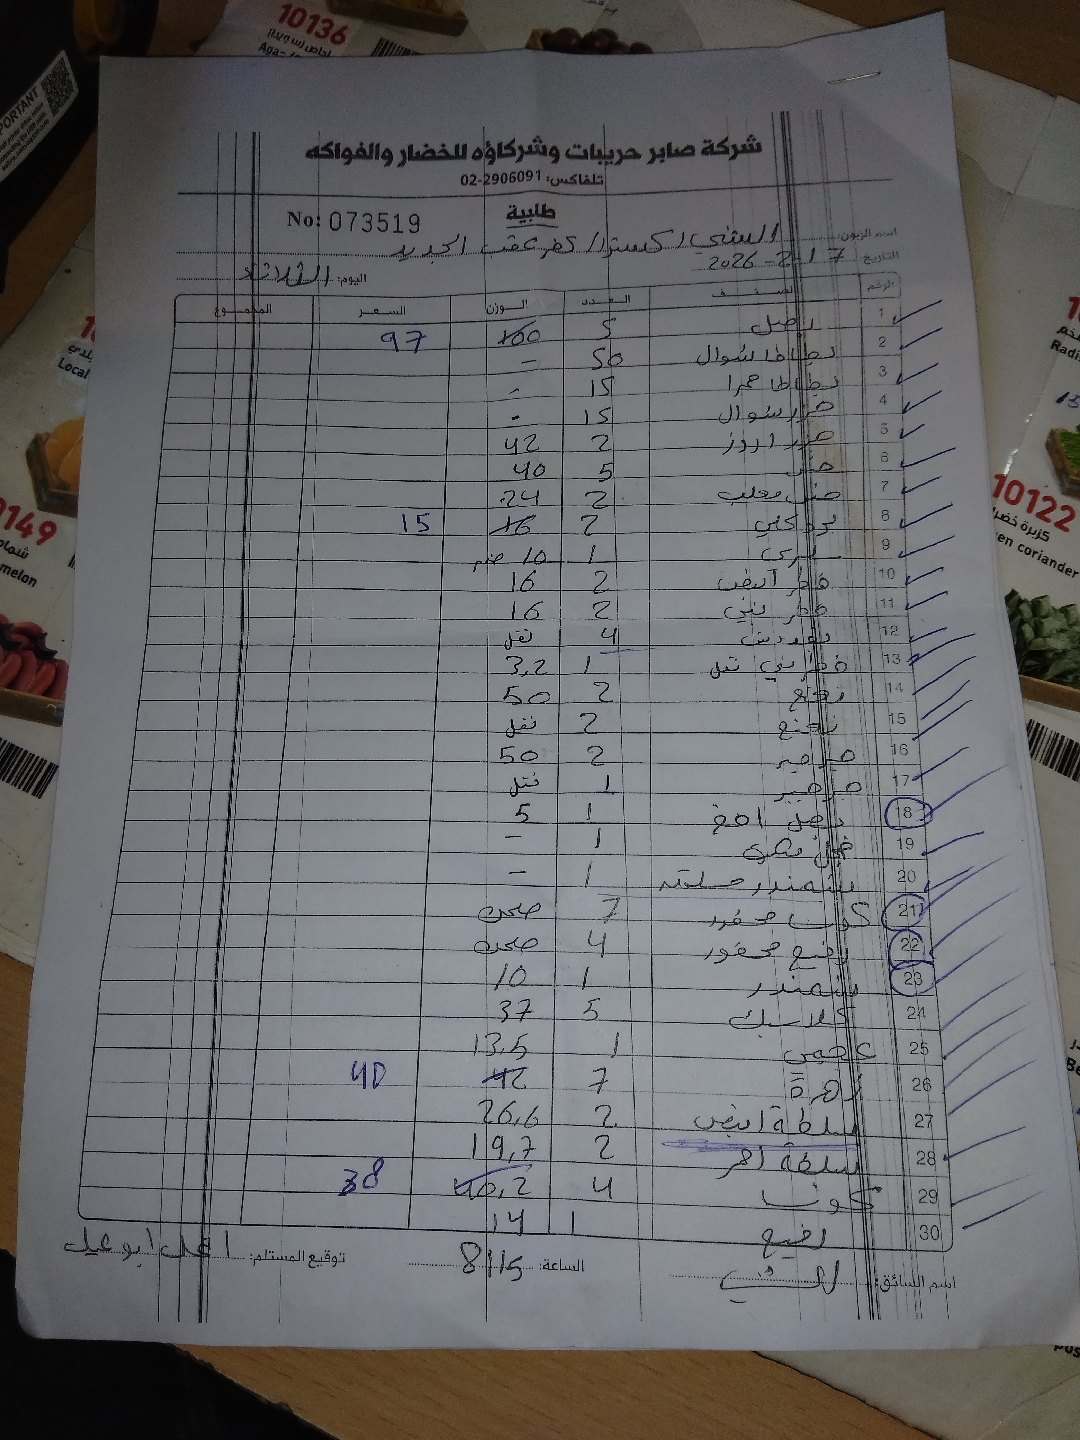 10136
IMPORTANT
شركة صابر حريبات وشركاؤه للخضار والفواكه
تلفاكس: 02-2906091
طلبية
No: 073519
اسم الزبون: السني اكسترا / كفر عقب الجديد
التاريخ: 17-2-2026
اليوم: الثلاثاء
الرقم الصنف العدد الوزن السعر المجموع
1 بصل 5 100 97
2 بطاطا شوال 50 -
3 بطاطا حمرا 15 -
4 جزر شوال 15 -
5 جزر 2 42
6 5 40
7 2 24
8 2 16 15
9 1 10
10 فطر ابيض 2 16
11 فطر بني 2 16
12 بقدونس 4 نقل
13 1 3,2
14 نعنع 2 50
15 نعنع 2 نقل
16 جرجير 2 50
17 جرجير 1 نقل
18 بصل اخضر 1 5
19 1 -
20 شمندر 1 -
21 كوسا محفور 7 صحن
22 رفيع محفور 4 صحن
23 شمندر 1 10
24 كلاسيك 5 37
25 عجمي 1 13,5
26 زهرة 7 42 40
27 سلطة ابيض 2 26,6
28 سلطة احمر 2 19,7
29 كوسا 4 40,2 38
30 رفيع 1 14
اسم السائق:
الساعة: 8:15
توقيع المستلم:
10149
شمام
melon
Local
10122
كزبرة خضراء
en coriander
Radi